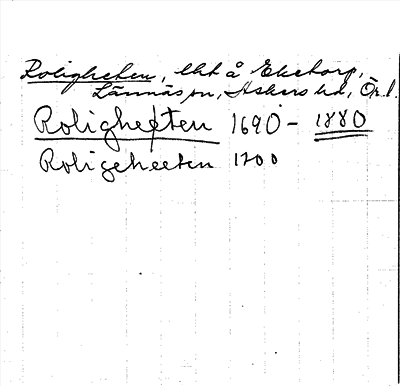 Roligheten, lht å Ekstorp,
Lännäs sn, Askers hd, Ör. l.
Rolighetten 1690 - 1880
Roligeheeten 1700